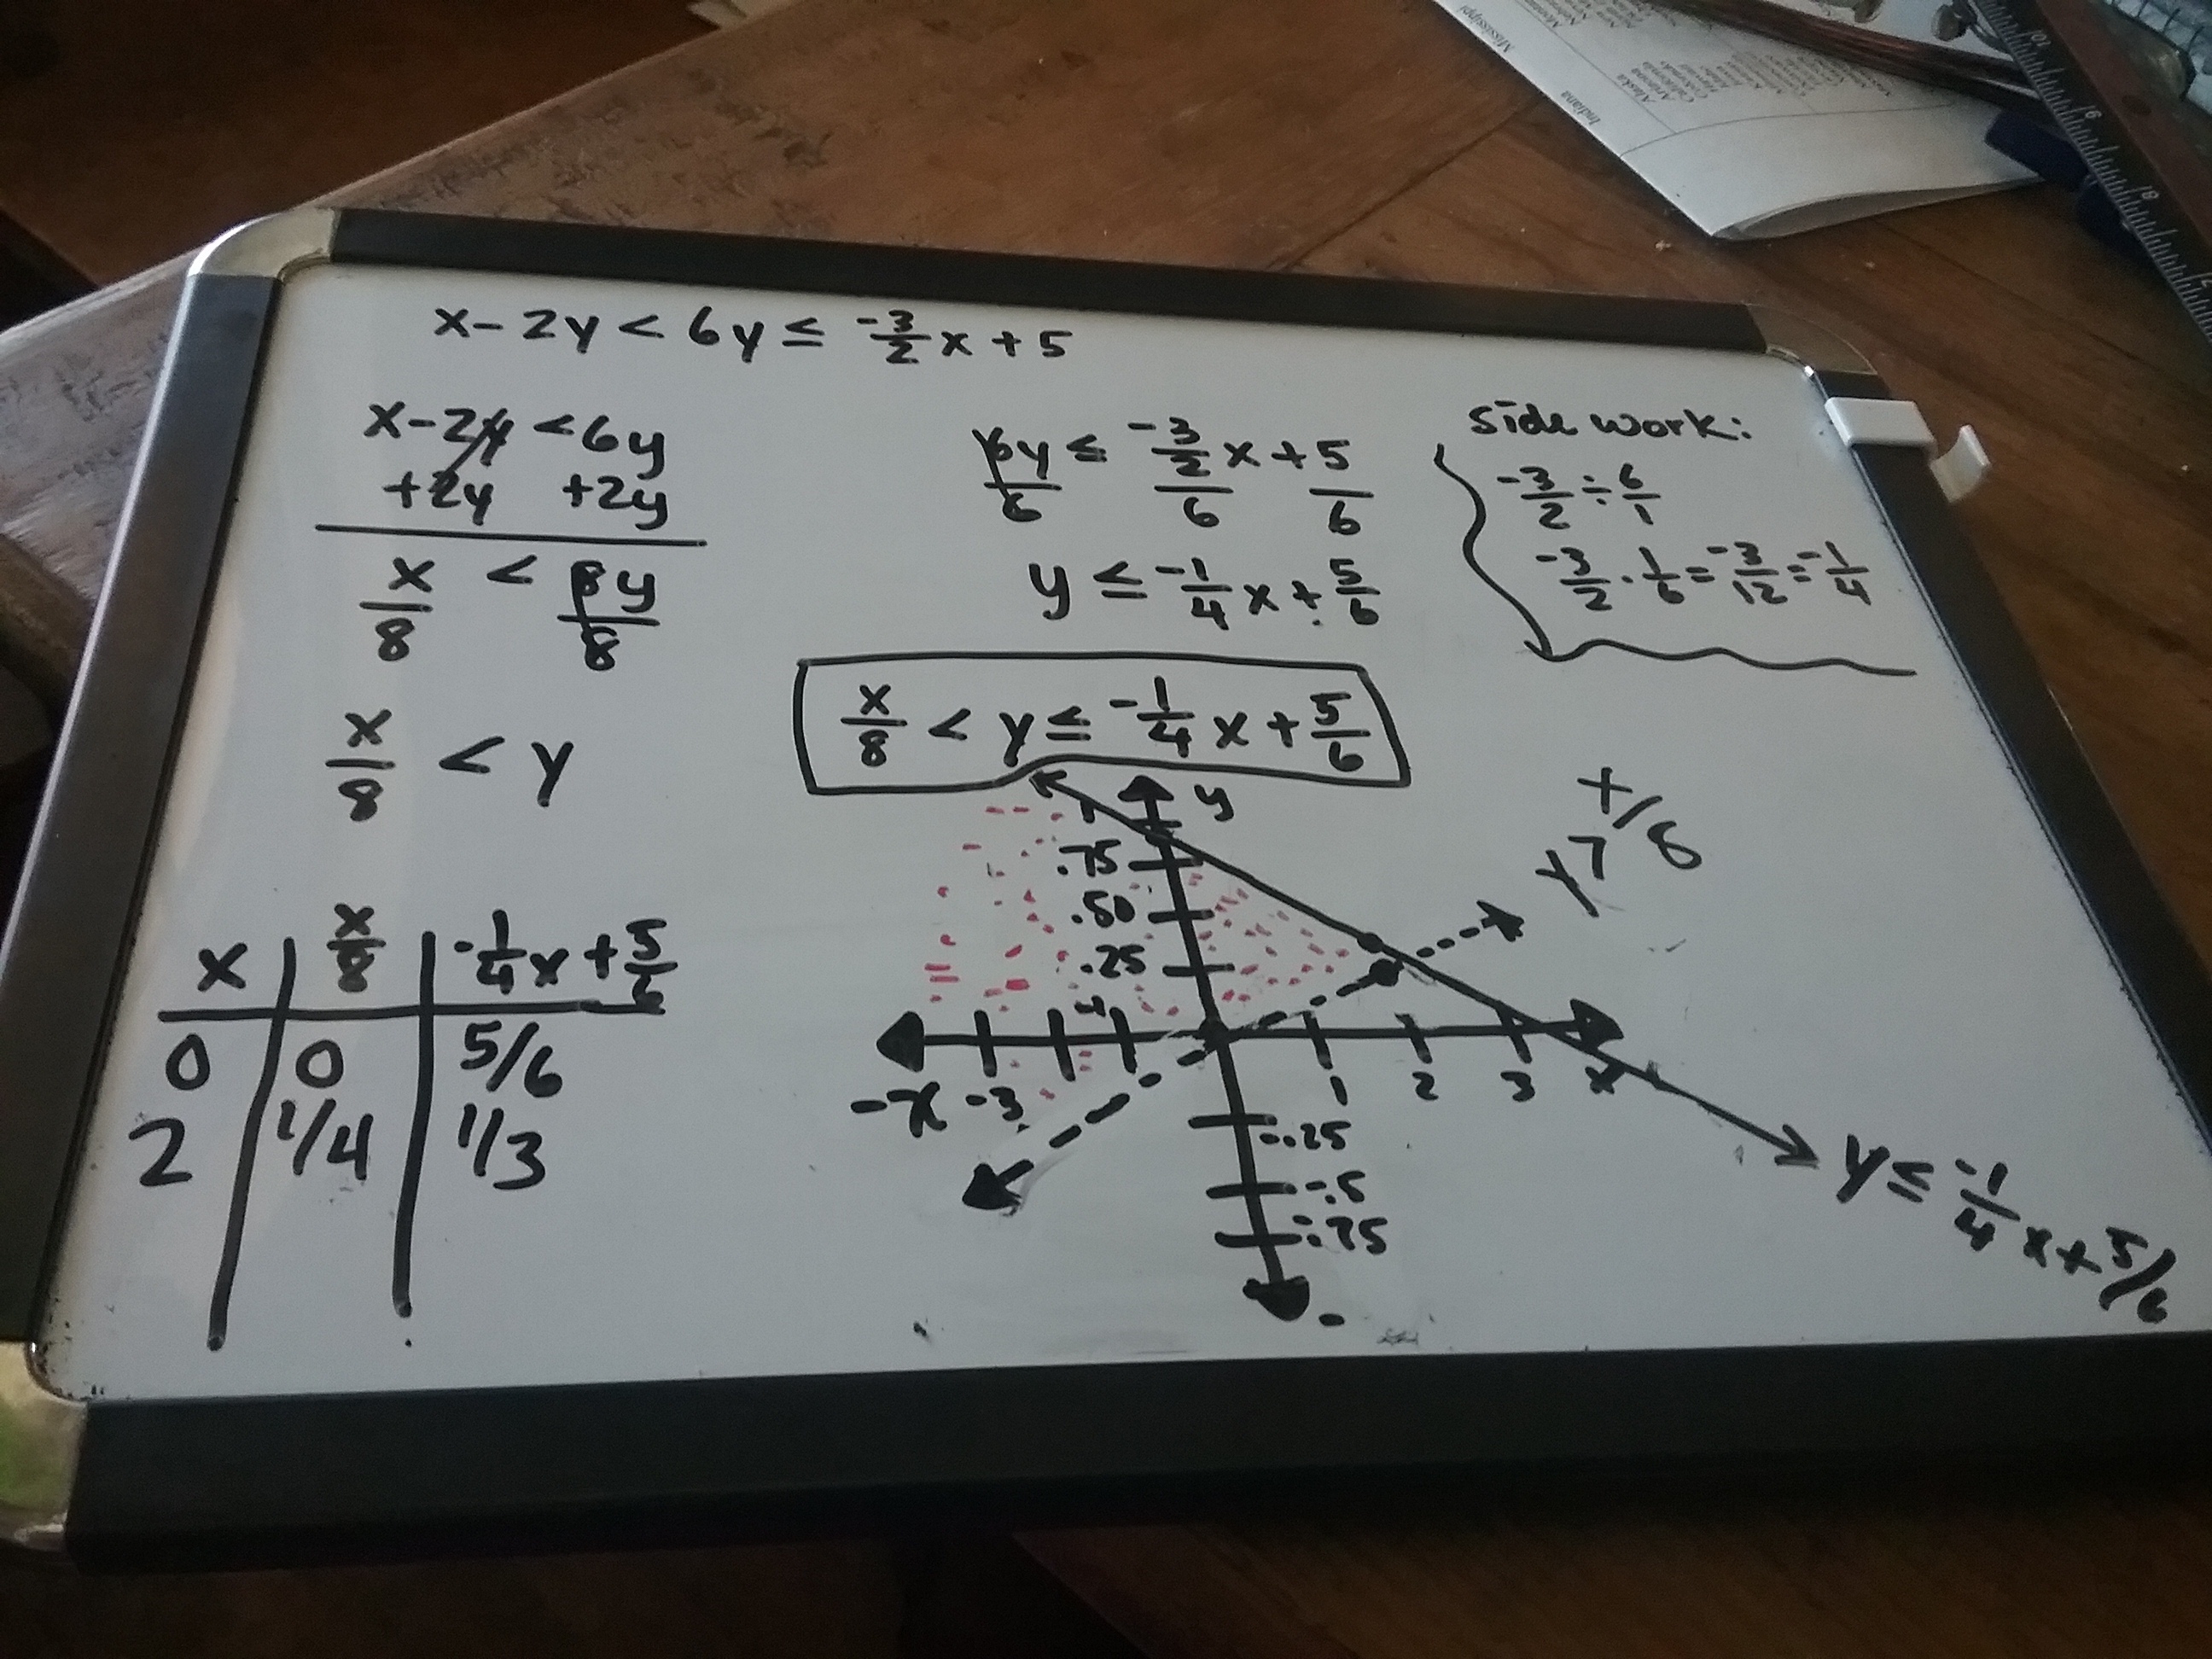 x - 2y < 6y ≤ -3/2 x + 5
x - 2y < 6y
+2y +2y
x/8 < 8y/8
x/8 < y
6y/6 ≤ -3/2 x/6 + 5/6
y ≤ -1/4 x + 5/6
side work:
-3/2 ÷ 6/1
-3/2 · 1/6 = -3/12 = -1/4
x/8 < y ≤ -1/4 x + 5/6
x | x/8 | -1/4 x + 5/6
0 | 0 | 5/6
2 | 1/4 | 1/3
y
1
.75
.50
.25
-x -3 1 2 3 x
-.25
-.5
-.75
-
y ≤ -1/4 x + 5/6
Mississippi
Indiana
Alaska
Arizona
California
10
9
8